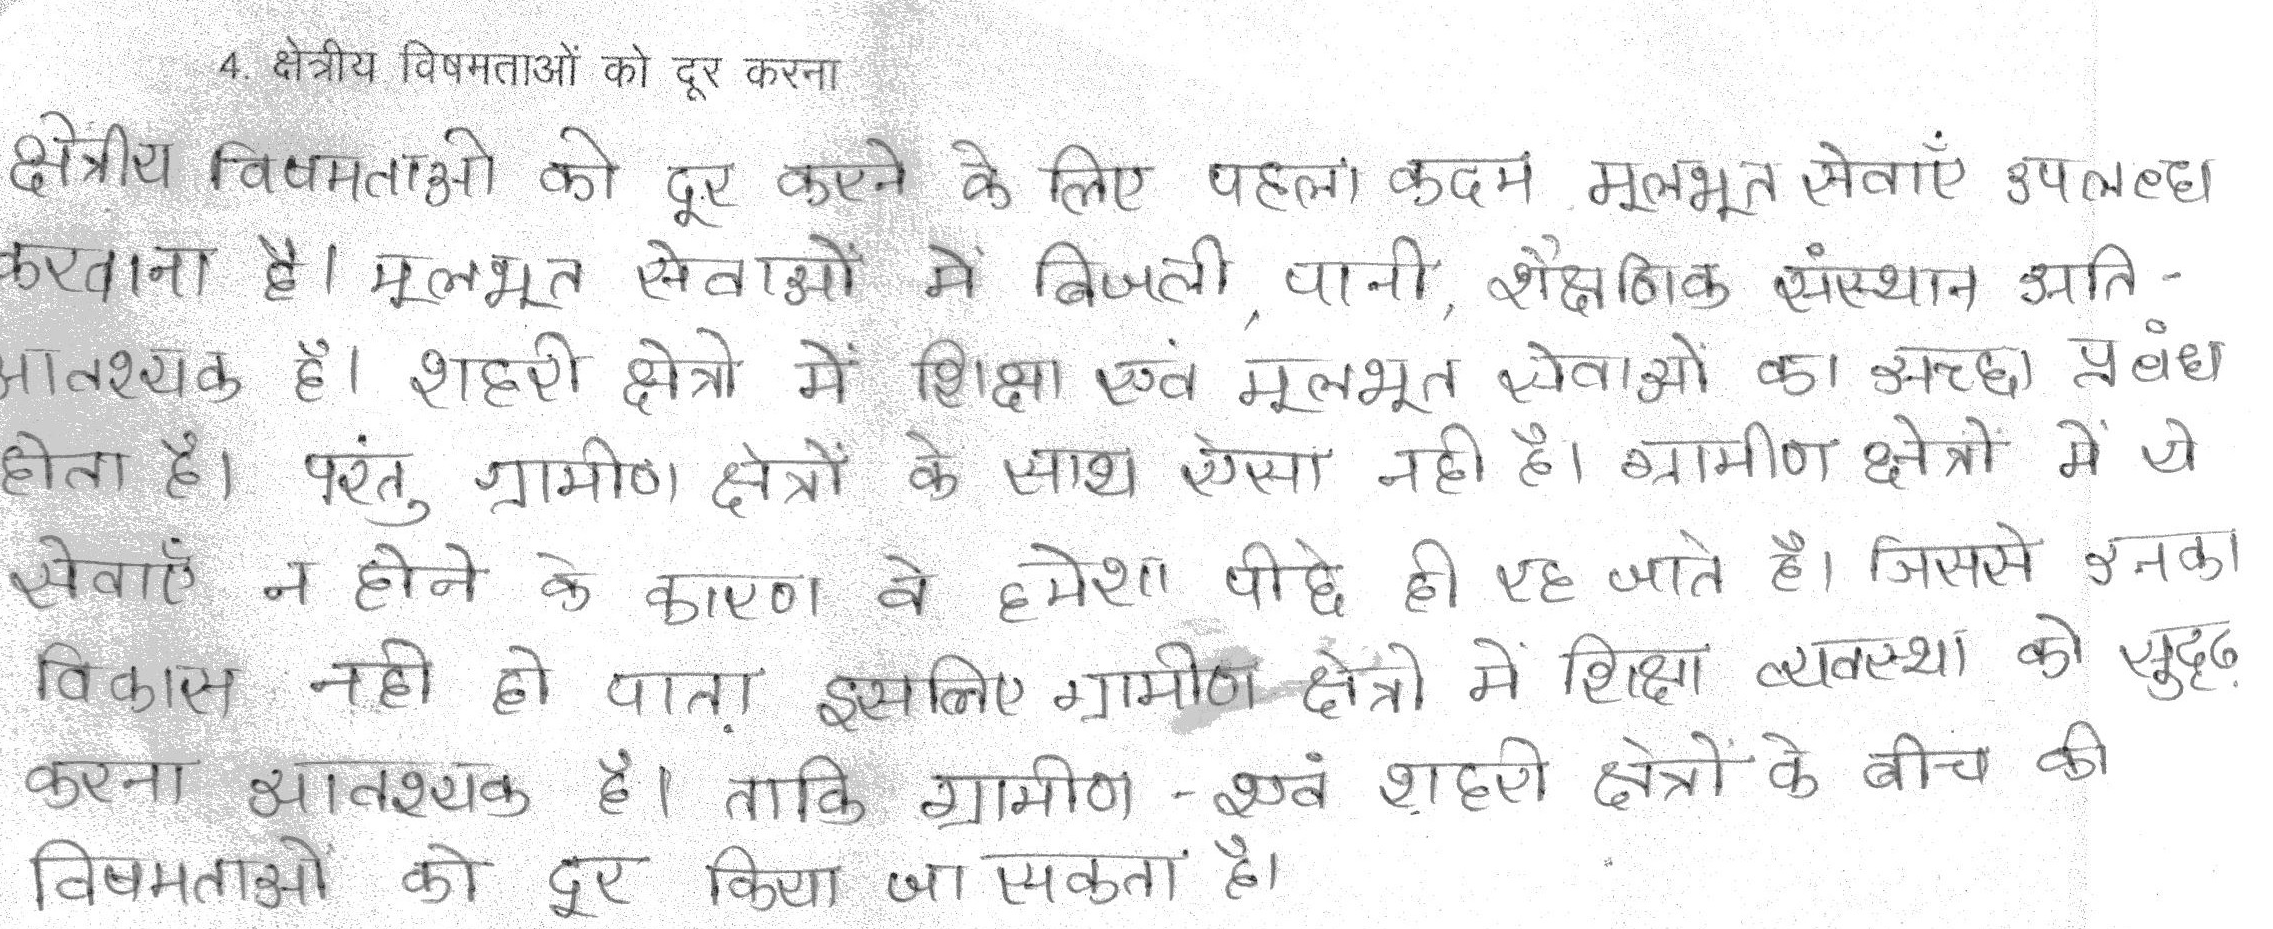 4. क्षेत्रीय विषमताओं को दूर करना
क्षेत्रीय विषमताओ को दूर करने के लिए पहला कदम मूलभूत सेवाएँ उपलब्ध
करवाना है। मूलभूत सेवाओं में बिजली, पानी, शैक्षणिक संस्थान अति-
आवश्यक है। शहरी क्षेत्रो में शिक्षा एवं मूलभूत सेवाओं का अच्छा प्रबंध
होता है। परंतु ग्रामीण क्षेत्रों के साथ ऐसा नही है। ग्रामीण क्षेत्रों में ये
सेवाएँ न होने के कारण वे हमेशा पीछे ही रह जाते है। जिससे उनका
विकास नही हो पाता इसलिए ग्रामीण क्षेत्रो में शिक्षा व्यवस्था को सुदृढ़
करना आवश्यक है। ताकि ग्रामीण - एवं शहरी क्षेत्रों के बीच की
विषमताओं को दूर किया जा सकता है।